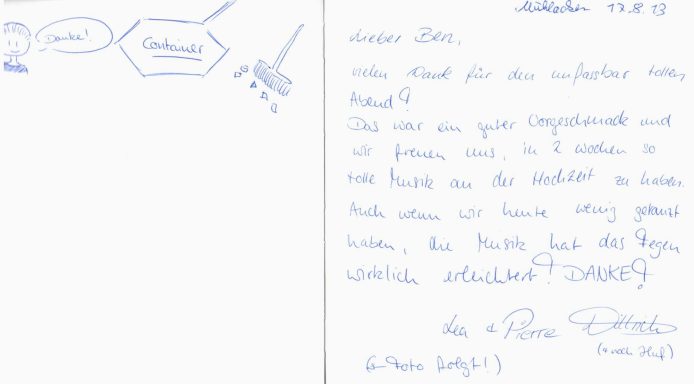 Danke!
Container
Mühlacker 17.8.13
Lieber Ben,
vielen Dank für den unfassbar tollen
Abend!
Das war ein guter Vorgeschmack und
wir freuen uns, in 2 Wochen so
tolle Musik an der Hochzeit zu haben.
Auch wenn wir heute wenig getanzt
haben, die Musik hat das Fegen
wirklich erleichtert! DANKE!
Lea & Pierre Dittrich
(noch
(Foto folgt!)